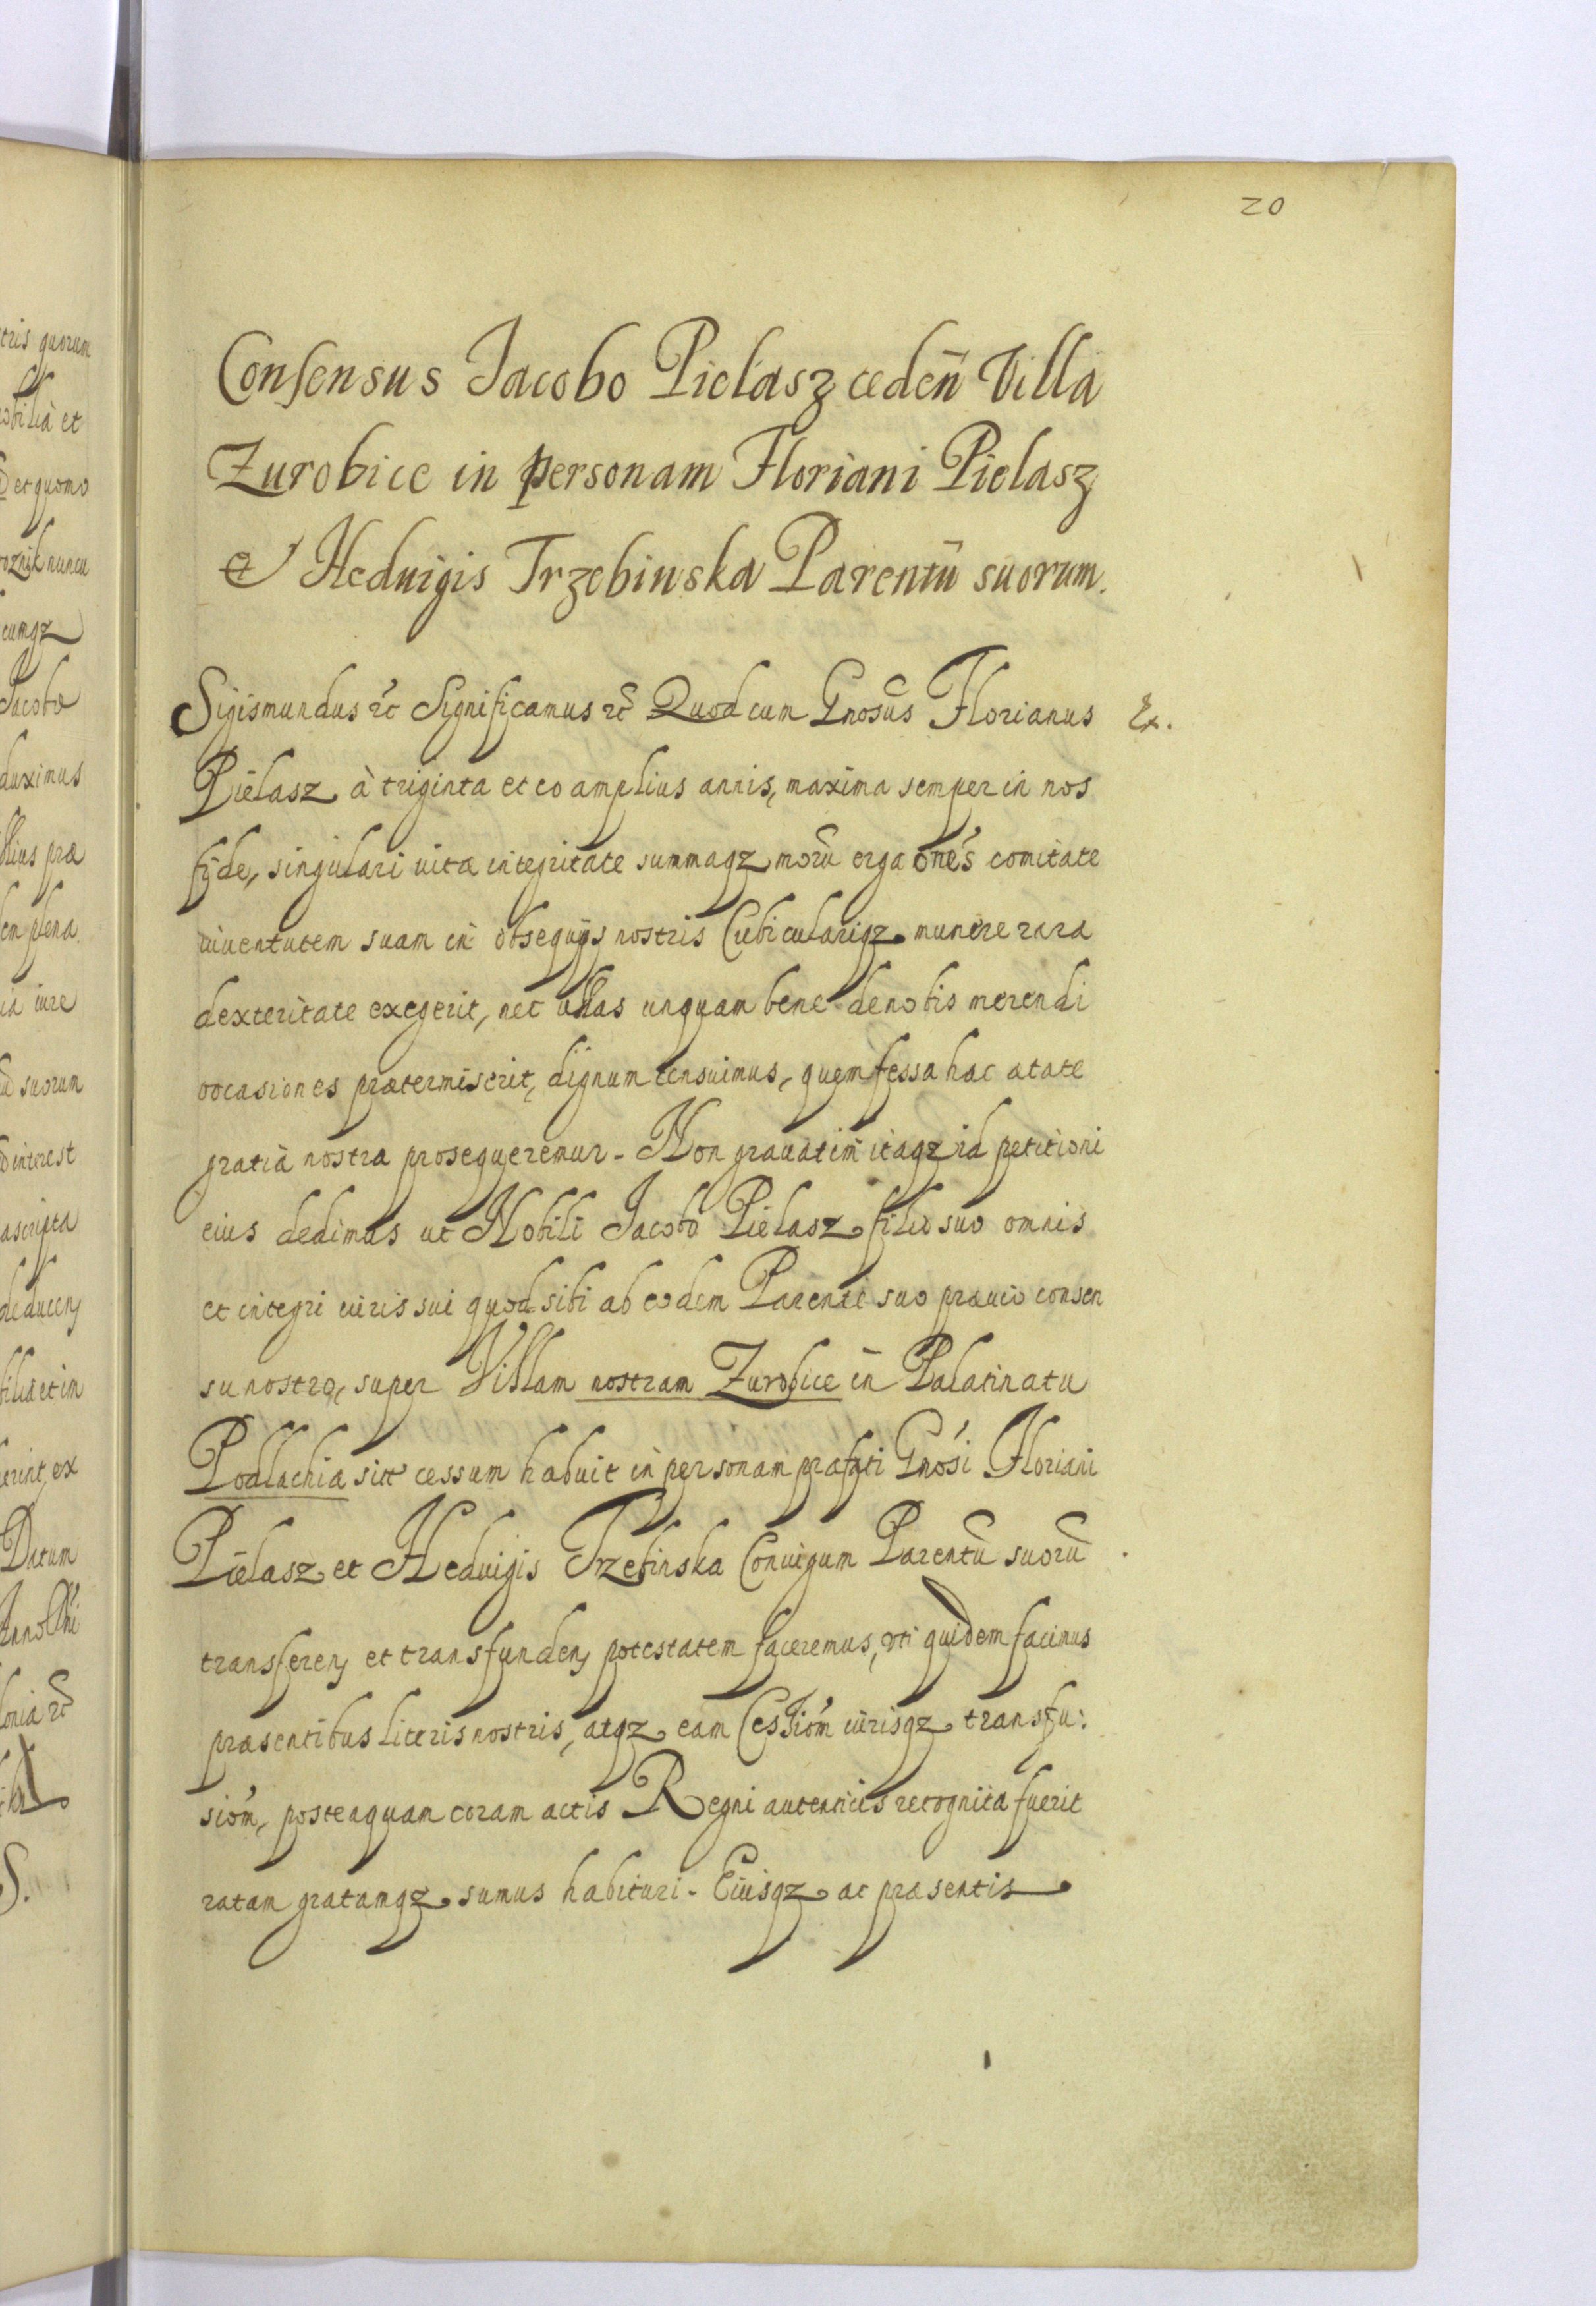 20
Consensus Jacobo Pielasz ceden̄ Villa
Zurobice in personam Floriani Pielasz
et Heduigis Trzebinska Parentū suorum.
Sigismundus etc̃ Significamus etc̃ Quod cum Gnosūs Florianus Ex.
Pielasz à triginta et eo amplius annis, maxima semper in nos
fide, singulari vita integritate summaqz morū erga onēs comitate
iuuentutem suam in obsequijs nostris Cubiculariqz munere rara
dexteritate exegerit, nec ullas unquam bene de nobis merendi
occasiones prætermiserit, dignum censuimus, quem fessa hac ætate
gratia nostra prosequeremur. Non grauatim itaqz id petitioni
eius dedimus ut Nobili Jacobo Pielasz filio suo omnis
et integri iuris sui quod sibi ab eodem Parente suo præuio consen
su nostro, super Villam nostram Zurobice in Palatinatu
Podlachia sitt̄ cessum habuit in personam præfati Gnosi Floriani
Pielasz et Heduigis Trzebinska Coniugum Parentū suorū
transferen̄ et transfunden̄ potestatem faceremus, vti quidem facimus
præsentibus literis nostris, atqz eam Cessiom̄ iurisqz transfu:
siom̄, posteaquam coram actis Regni autenticis recognita fuerit
ratam gratamqz sumus habituri. Eiusqz ac præsentis
tris quorum
obilia et
et quomo
cumqz
Jacobo
duximus
llius præ
em plena
ia iure
suorum
interest
ascripta
deducen̄
erint, ex
Datum
Anno Dn̄i
lonia etc̃
S.